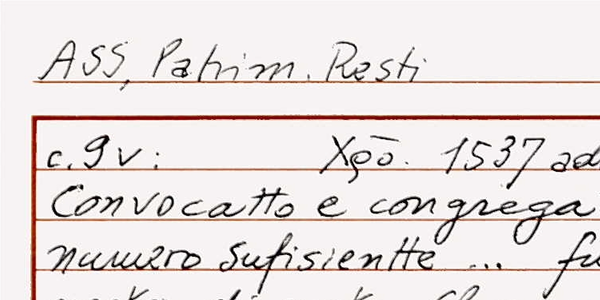 ASS, Patrim. Resti
c. 9 v: Xpō. 1537 ad
Convocatto e congrega
numero sufisientte ... fu